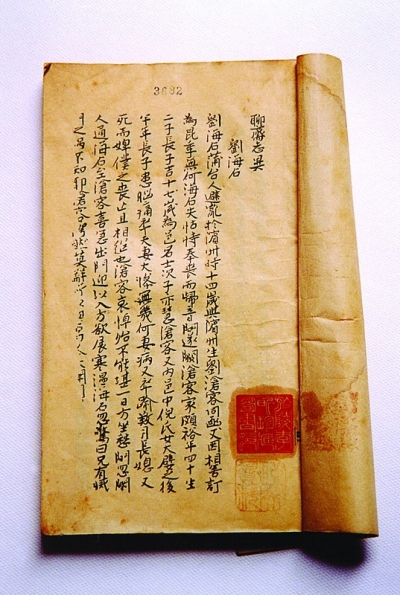 3682
聊齋志異
劉海石
劉海石蒲台人避亂於濱州時十四歲與濱州生劉滄客同函丈因相善訂
為昆季無何海石失怙恃奉喪而歸音問遂闕滄客家頗裕年四十生
二子長子吉十七歲為邑名士次子亦慧滄客又內邑中倪氏女大嬖之後
半年長子患腦痛卒夫妻大慘無幾何妻病又卒逾數月長媳又
死而婢僕之喪亡且相繼也滄客哀悼殆不能堪一日方坐愁間忽閽
人通海石至滄客喜急出門迎以入方欲展寒溫海石忽驚曰兄有滅